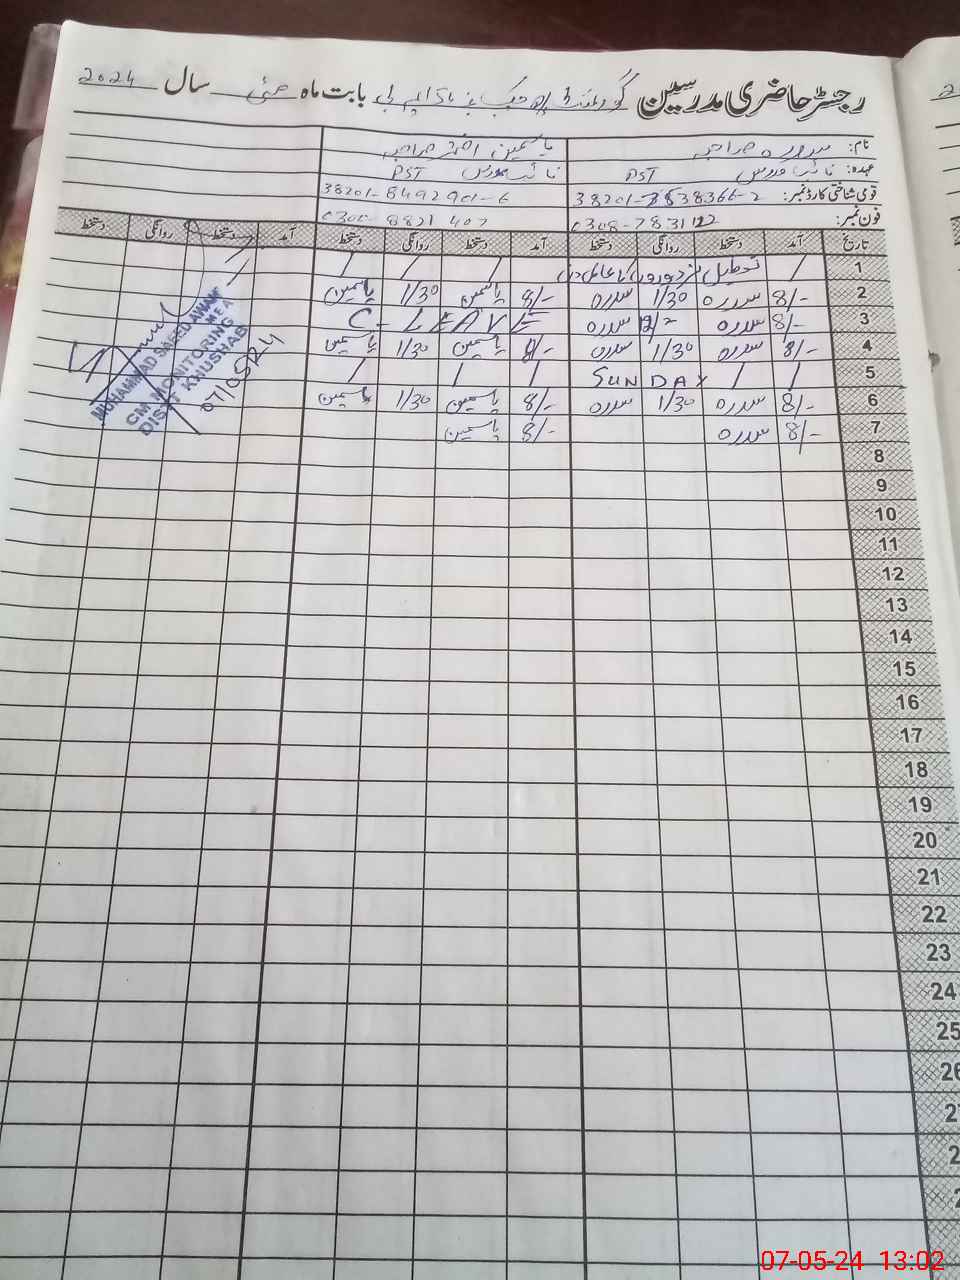 رجسٹر حاضری مدرسین گورنمنٹ بابت ماہ مئی سال 2024
نام: سدرہ یاسمین اختر
عہدہ: نائب مدرس PST نائب مدرس PST
قومی شناختی کارڈ نمبر: 38201-8492901-6
فون نمبر:
تاریخ آمد دستخط روانگی دستخط آمد دستخط روانگی دستخط آمد دستخط روانگی دستخط
1 / تعطیل / / /
2 8/- سدرہ 1/30 سدرہ 8/- یاسمین 1/30 یاسمین
3 8/- سدرہ سدرہ C-LEAVE
4 8/- سدرہ 1/30 سدرہ 8/- یاسمین 1/30 یاسمین
5 / / SUNDAY / / /
6 8/- سدرہ 1/30 سدرہ 8/- یاسمین 1/30 یاسمین
7 8/- سدرہ 8/- یاسمین
8
9
10
11
12
13
14
15
16
17
18
19
20
21
22
23
24
25
26
MUHAMMAD SAEED AWAN
MEA
CM MONITORING
DISTT KHUSHAB
07/05/24
07-05-24 13:02